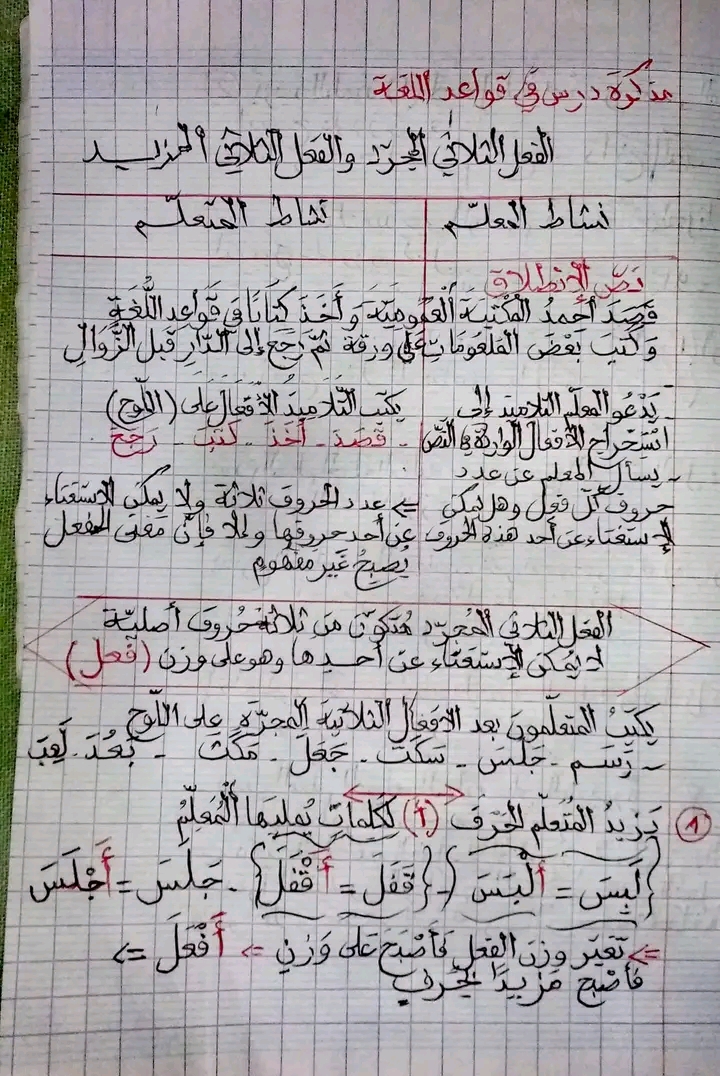 مذكرة درس في قواعد اللغة
الفعل الثلاثي المجرّد والفعل الثلاثي المزيد
نشاط المعلّم
نشاط المتعلّم
نصّ الإنطلاق
قَصَدَ أحمدُ المكتبَةَ العُمُوميّةَ وَأَخَذَ كِتَابًا في قَواعد اللُّغَةِ
وَكَتَبَ بَعْضَ المَلعُومَاتِ عَلَى ورقة ثمّ رَجَعَ إلى الدّارِ قبلَ الزّوالِ
- يَدْعُو المعلّم التلاميذ إلى
استخراج الأفعال الواردة في النّصّ
- يسأل المعلم عن عدد
حروف كلّ فعل وهل يمكن
الإستغناء عن أحد هذه الحروف
يكتب التّلاميذ الأفعال على (اللّوح)
- قَصَدَ - أخَذَ - كَتَبَ - رَجَعَ
<= عدد الحروف ثلاثة ولا يمكن الاستغناء
عن أحد حروفها وإلا فإنّ مَعْنَى الفعل
يُصبِحُ غَيرَ مفهومٍ
الفعل الثلاثي المُجرّد مُتكوّن من ثلاثة حُروف أصليّة
لا يُمكن الإستغناء عن أحدها وهو على وزن (فعل)
يكتبُ المتعلّمونَ بعد الأفعال الثلاثية المجرّدة على اللّوح
- رَسَمَ - جَلَسَ - سَكَتَ - جَعَلَ - مَكَثَ - بَعُدَ - لَعِبَ
1 يَزيدُ المُتَعلّم الحَرْفَ (أ) لِكَلماتٍ يُمليهَا المُعَلّمُ
{لَبِسَ = ألْبَسَ} - {قَفَلَ = أقْفَلَ} - جَلَسَ = أَجْلَسَ
<= تَغَيّر وزن الفعل فأصْبَحَ عَلَى وَزْنِ <= أَفْعَلَ <=
فأصْبح مَزيدًا بحَرفٍ